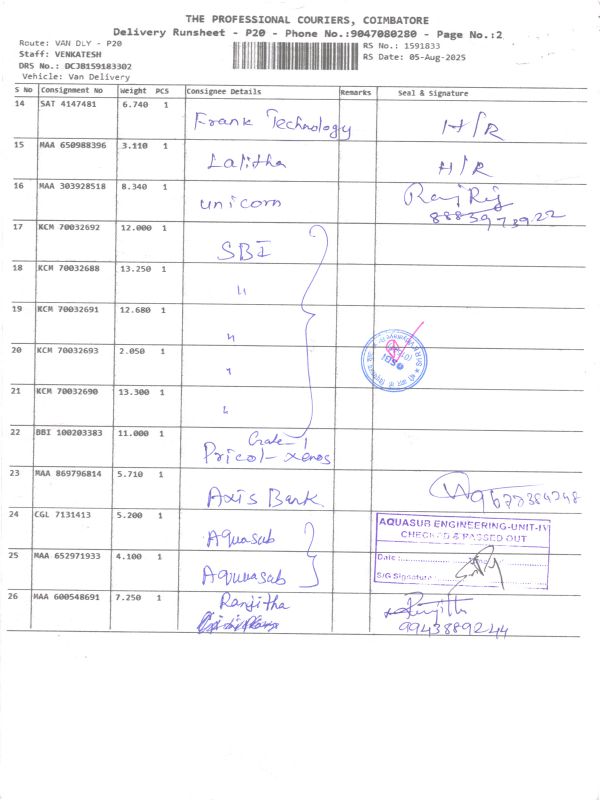 THE PROFESSIONAL COURIERS, COIMBATORE
Delivery Runsheet - P20 - Phone No.:9047080280 - Page No.:2
Route: VAN DLY - P20 RS No.: 1591833
Staff: VENKATESH RS Date: 05-Aug-2025
DRS No.: DCJB159183302
Vehicle: Van Delivery
S No Consignment No Weight PCS Consignee Details Remarks Seal & Signature
14 SAT 4147481 6.740 1 Frank Technology H/R
15 MAA 650988396 3.110 1 Lalitha H/R
16 MAA 303928518 8.340 1 unicorn
17 KCM 70032692 12.000 1 SBI
18 KCM 70032688 13.250 1 "
19 KCM 70032691 12.680 1 "
20 KCM 70032693 2.050 1 "
21 KCM 70032690 13.300 1 "
22 BBI 100203383 11.000 1 Pricol - xenos
23 MAA 869796814 5.710 1 Axis Bank
24 CGL 7131413 5.200 1 Aquasub
AQUASUB ENGINEERING-UNIT-IV
CHECKED & PASSED OUT
Date :
S/G Signature :
25 MAA 652971933 4.100 1 Aquuasub
26 MAA 600548691 7.250 1 Ranjitha
9943889244